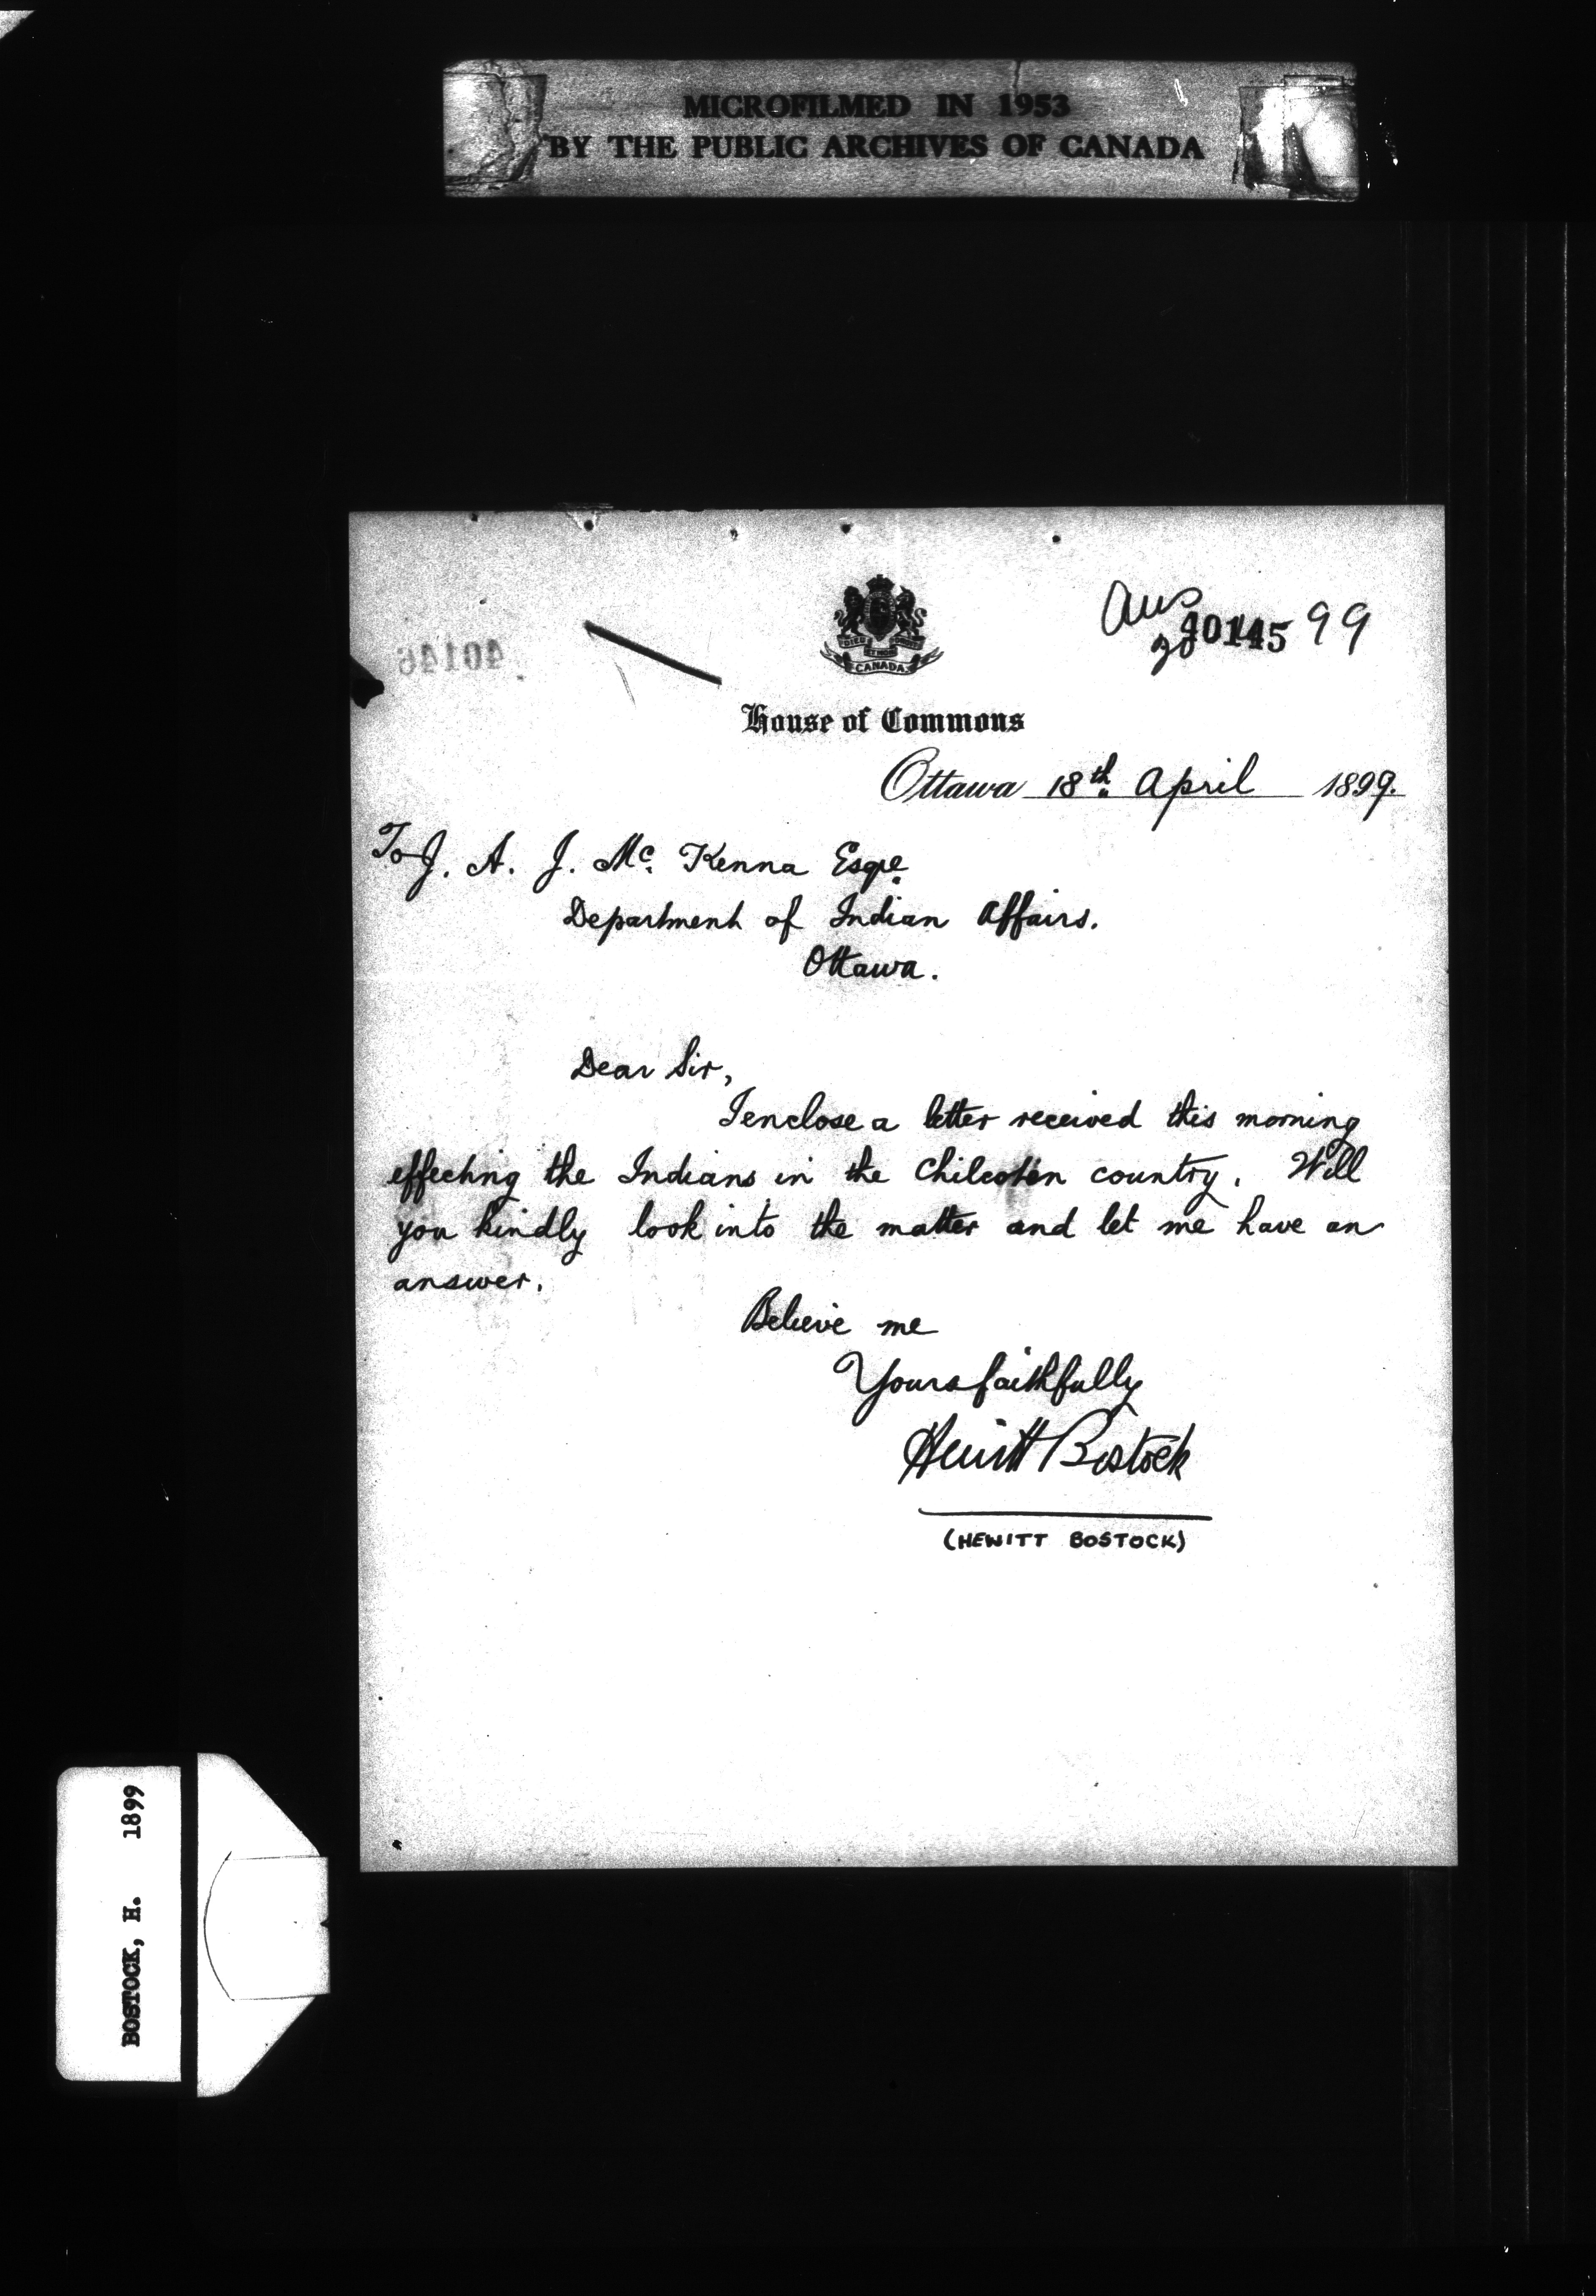 MICROFILMED IN 1953
BY THE PUBLIC ARCHIVES OF CANADA
Ans
40145 99
40146
CANADA
House of Commons
Ottawa 18th April 1899.
To J. A. J. Mc. Kenna Esqre
Department of Indian Affairs.
Ottawa.
Dear Sir,
I enclose a letter received this morning
effecting the Indians in the Chilcoten country. Will
you kindly look into the matter and let me have an
answer.
Believe me
Yours faithfully
Hewitt Bostock
(HEWITT BOSTOCK)
BOSTOCK, H. 1899